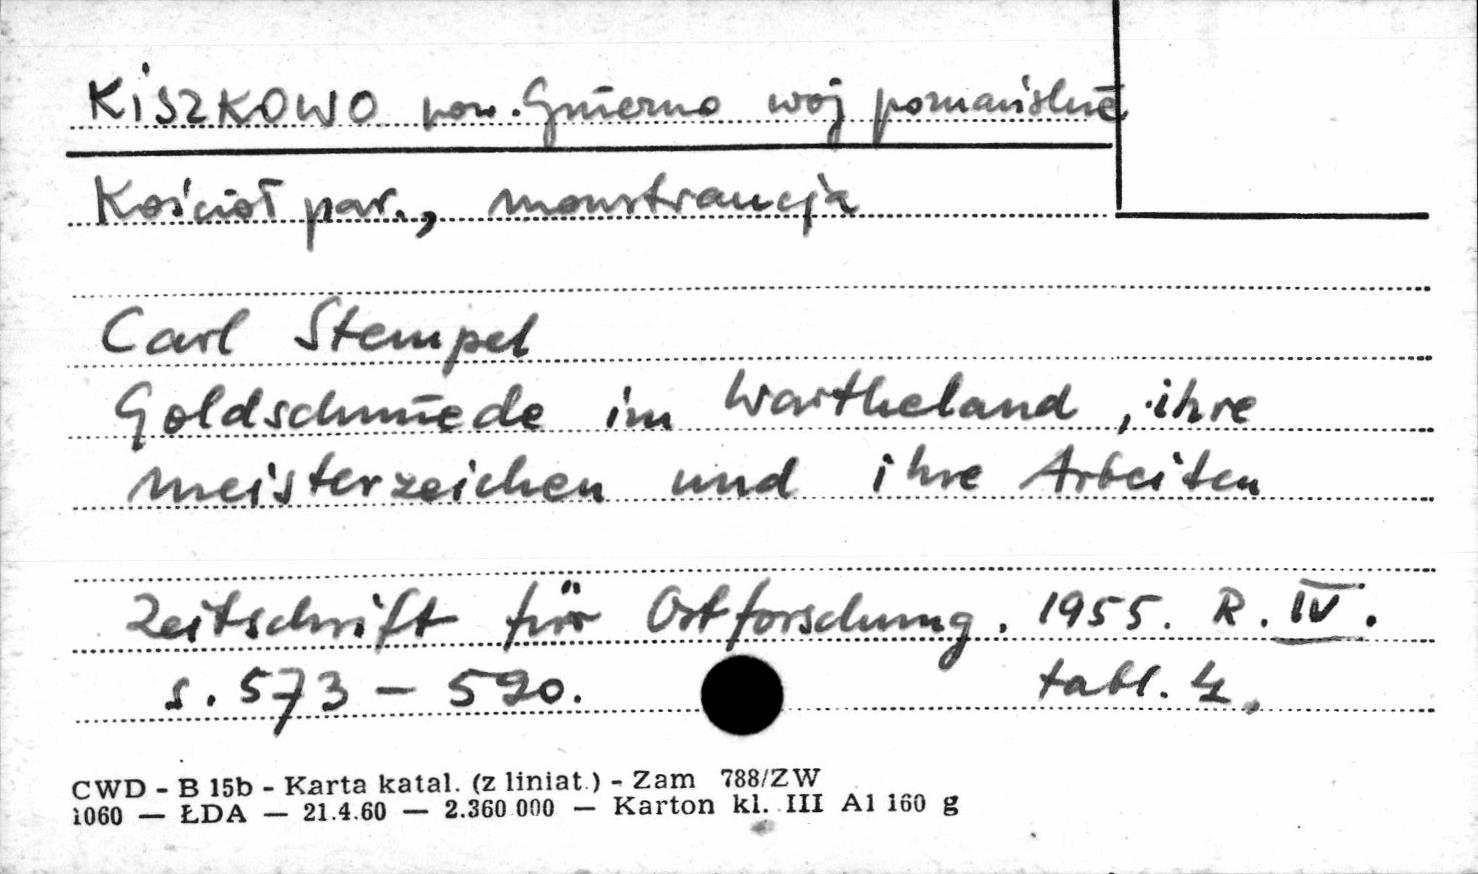 KISZKOWO pow. Gniezno woj poznańskie
Kościół par., monstrancja
Carl Stempel
Goldschmiede im Wartheland, ihre
Meisterzeichen und ihre Arbeiten
Zeitschrift für Ostforschung. 1955. R. IV.
s. 573 - 590. tabl. 4.
CWD - B 15b - Karta katal. (z liniat.) - Zam 788/ZW
1060 — ŁDA — 21.4.60 — 2.360.000 — Karton kl. III A1 160 g